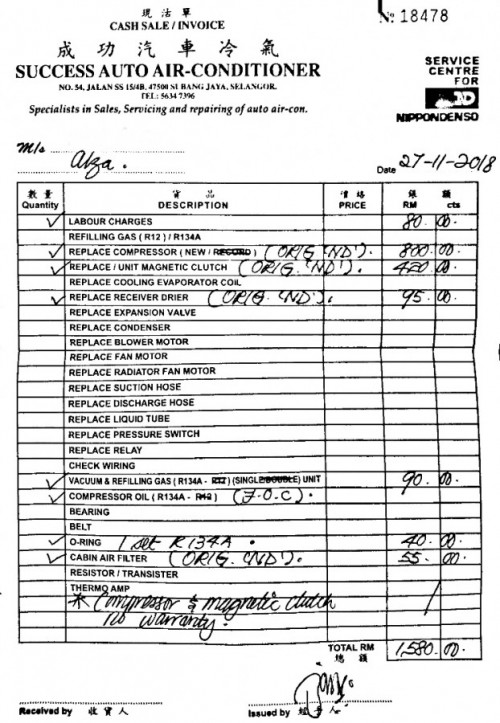 現沽單
CASH SALE / INVOICE
№ 18478
成功汽車冷氣
SUCCESS AUTO AIR-CONDITIONER
NO. 54, JALAN SS 15/4B, 47500 SUBANG JAYA, SELANGOR.
TEL: 5634 7396
Specialists in Sales, Servicing and repairing of auto air-con.
SERVICE
CENTRE
FOR
ND
NIPPONDENSO
M/s Alza.
Date 27-11-2018
數量 貨品 價格 銀額
Quantity DESCRIPTION PRICE RM cts
✓ LABOUR CHARGES 80. 00.
REFILLING GAS ( R12 ) / R134A
✓ REPLACE COMPRESSOR ( NEW / RECORD ) (ORIG. 'ND'). 800. 00.
✓ REPLACE / UNIT MAGNETIC CLUTCH (ORIG. 'ND'). 420. 00.
REPLACE COOLING EVAPORATOR COIL
✓ REPLACE RECEIVER DRIER (ORIG. 'ND'). 95. 00.
REPLACE EXPANSION VALVE
REPLACE CONDENSER
REPLACE BLOWER MOTOR
REPLACE FAN MOTOR
REPLACE RADIATOR FAN MOTOR
REPLACE SUCTION HOSE
REPLACE DISCHARGE HOSE
REPLACE LIQUID TUBE
REPLACE PRESSURE SWITCH
REPLACE RELAY
CHECK WIRING
✓ VACUUM & REFILLING GAS ( R134A - R12 ) (SINGLE/DOUBLE) UNIT 90. 00.
✓ COMPRESSOR OIL ( R134A - R12 ) (F.O.C).
BEARING
BELT
✓ O-RING 1 set R134A. 40. 00.
✓ CABIN AIR FILTER (ORIG. 'ND'). 55. 00.
RESISTOR / TRANSISTER
THERMO AMP
* Compressor & magnetic clutch
no warranty.
TOTAL RM 1,580. 00.
總額
Received by 收貨人
Issued by 經手人